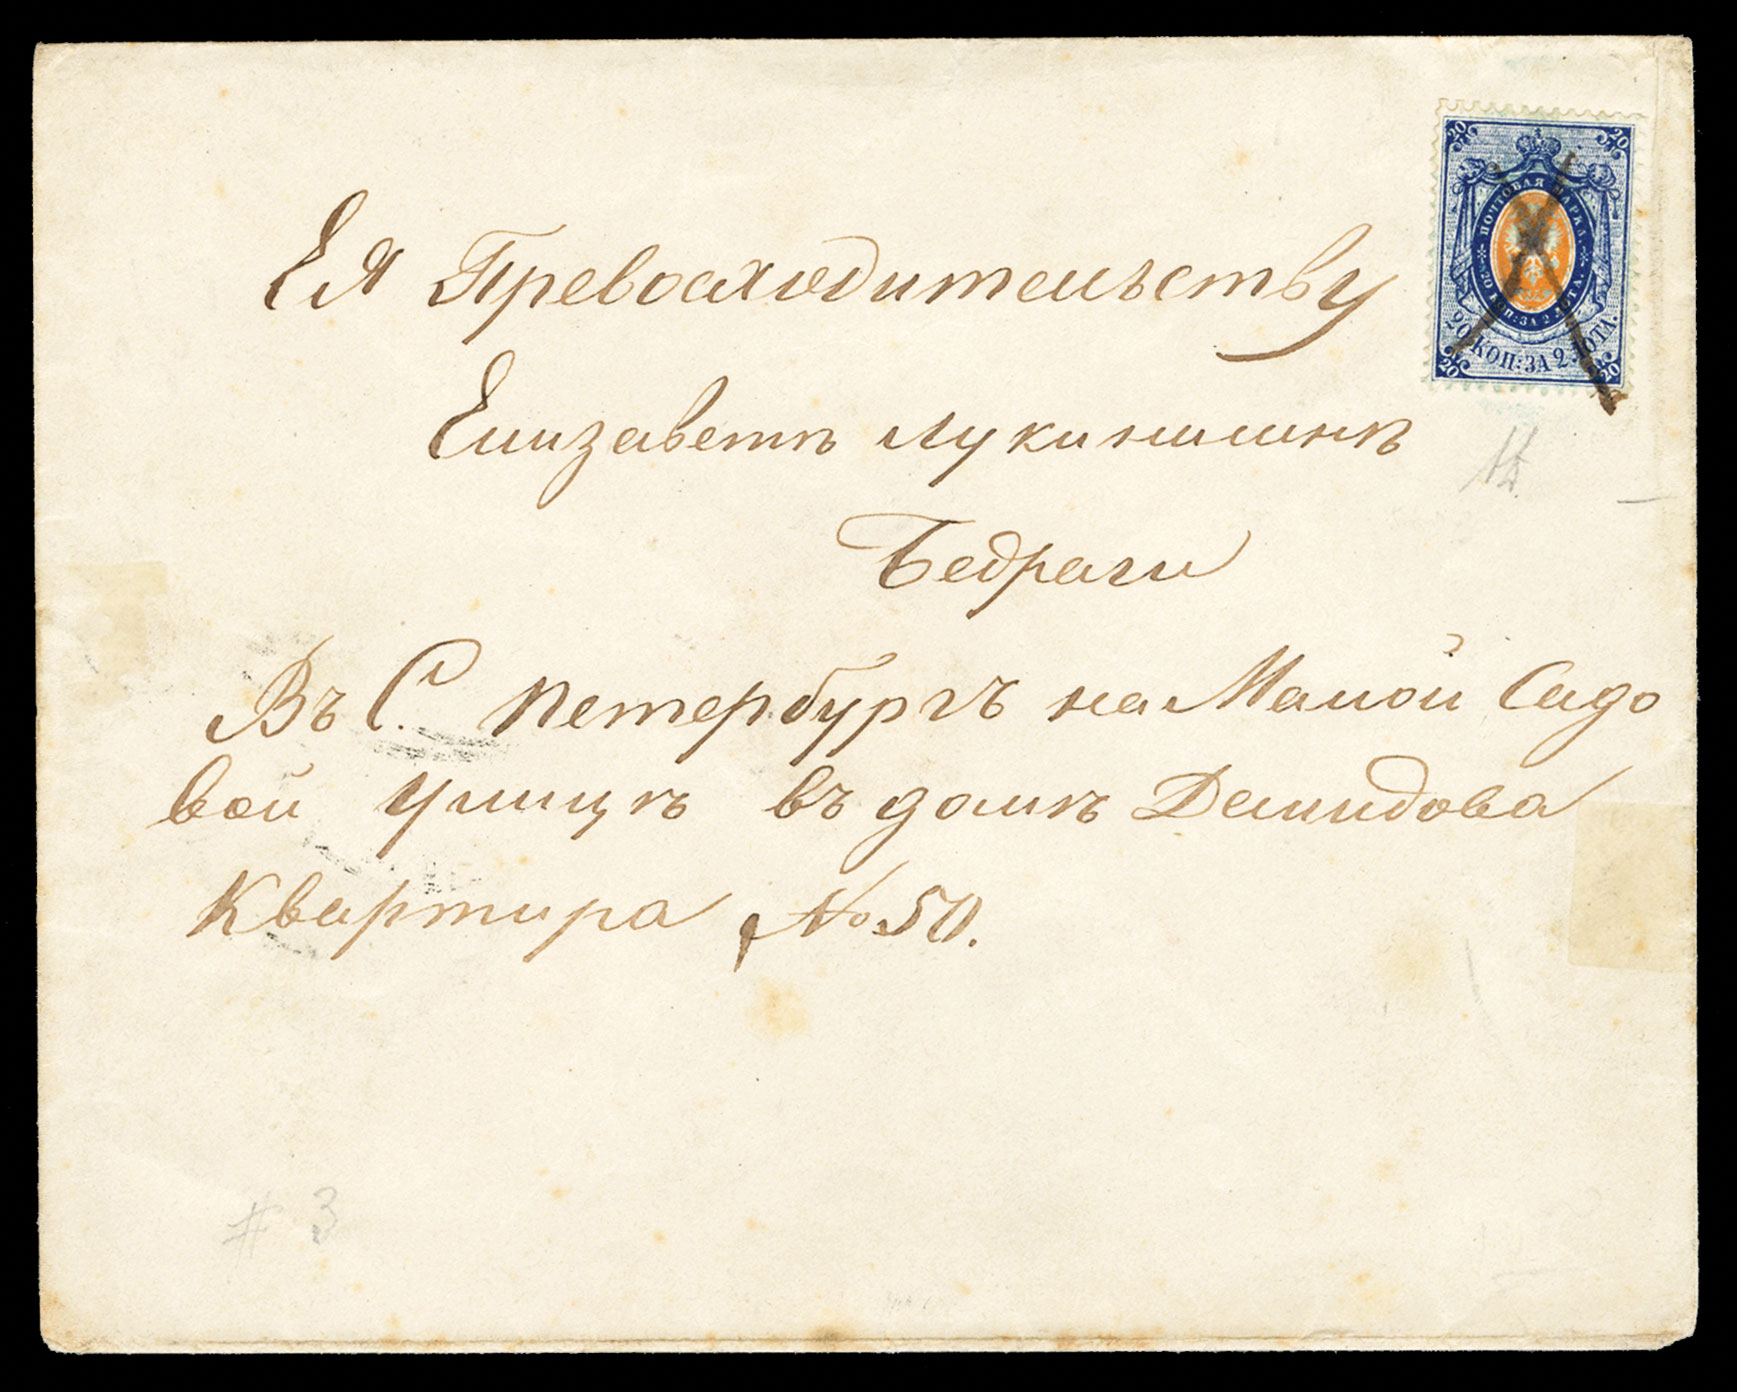 Ея Превосходительству
Елизаветѣ Лукинишнѣ
Бедраги
Въ С. Петербургъ на Малой Садо
вой улицѣ въ домѣ Демидова
Квартира №50.
20 20
ПОЧТОВАЯ МАРКА.
20 КОП: ЗА 2 ЛОТА.
20 КОП: ЗА 2 ЛОТА.
20 20
# 3